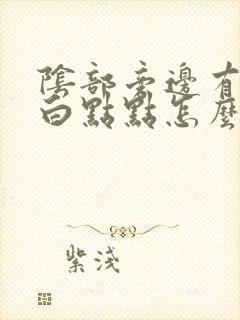 陰部旁邊有
白點點怎麼
紫淺